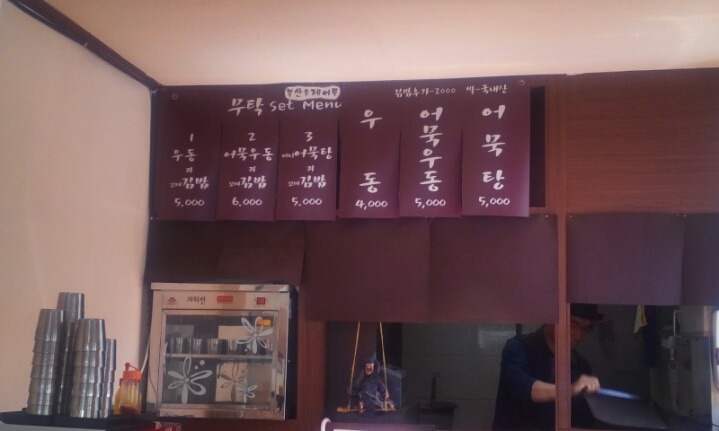 부산수제어묵
무탁 Set Menu
김밥추가-2000 쌀-국내산
1
우동
과
꼬마김밥
5,000
2
어묵우동
과
꼬마김밥
6,000
3
미니어묵탕
과
꼬마김밥
5,000
우동
4,000
어묵우동
5,000
어묵탕
5,000
자외선